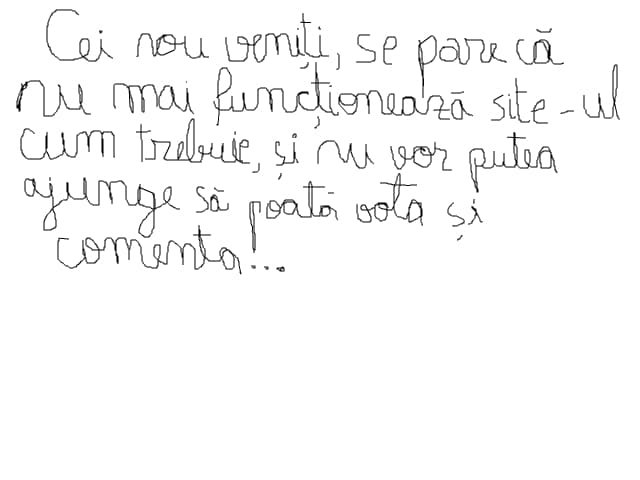 Cei nou veniți, se pare că
nu mai funcționează site-ul
cum trebuie, și nu vor putea
ajunge să poată vota și
comenta!...